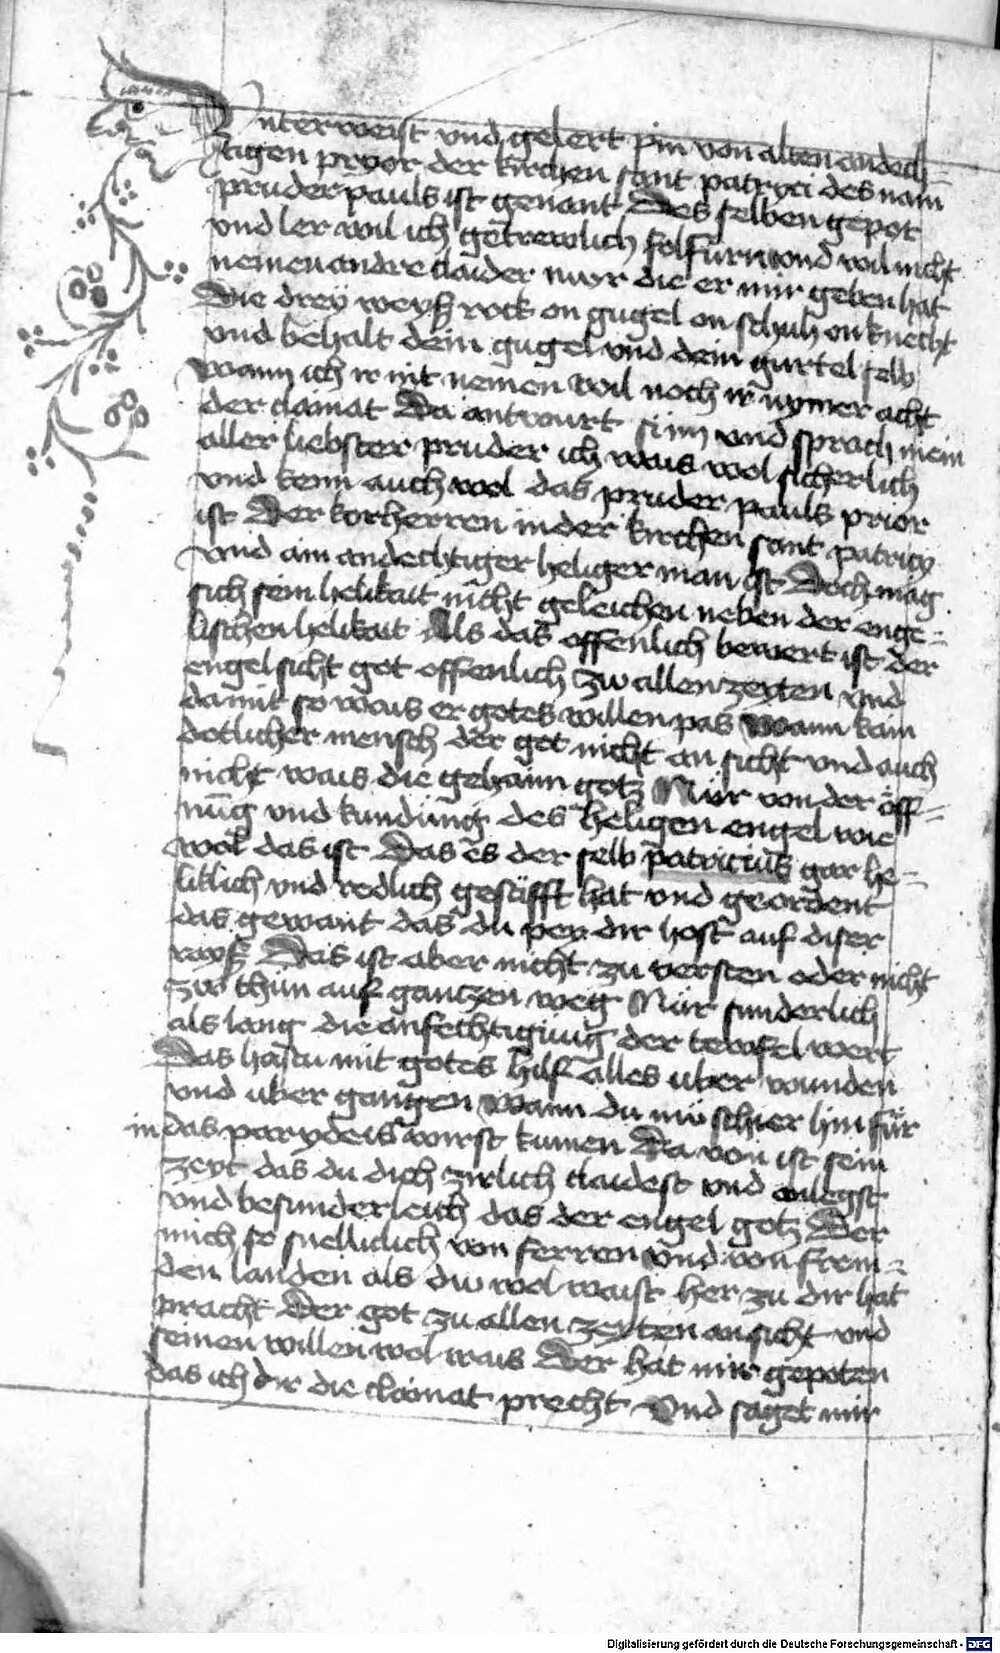 Vnterweist vnd gelert pin von alten andech=
tigen pryor der kirchen sant patryci des nam
pruder pauls ist genant Des selben gepot
vnd ler wil ich getrewlich folfurn vnd wil nicht
nemen andre claider nuyr die er mir geben hat
Die drey weyß rock on gugel on schuh on knecht
vnd behalt dein gugel vnd dein gurtel selb
wann ich ir nit nemen wil noch ir nymer acht
der clainat Da antwurt und sprach mein
aller liebster pruder ich wais wol sicherlich
vnd kenn auch wol das pruder pauls prior
ist Der korherren in der kirchen sant patricy
vnd ain andechtiger heliger man ist Doch mag
sich sein helikait nicht geleichen neben der enge=
lischen helikait Als das offenlich bewert ist der
engel sicht got offenlich zw allen zeyten vnd
damit so wais er gotes willen pas wann kain
dotlicher mensch der got nicht an sicht vnd auch
nicht wais die gehaim gotz Nür von der öff=
nug vnd kundung des heligen engel wie
wol das ist Das es der selb patricius gar he=
liklich vnd redlich gestifft hat vnd geordent
das gewant das du pey dir host auf diser
rayß Das ist aber nicht zu versten oder nicht
zw thun auf gantzen weg Nür sunderlich
als lang die anfechtigung der tewfel wert
Das hastu mit gotes hilf alles uber wunden
vnd uber gangen wann du nu schier hin für
in das parydeis wirst kumen Da von ist sein
zeyt das du dich zirlich claidest vnd anlegst
vnd besunderleich das der engel gotz Der
mich so snelliclich von ferren vnd von frem=
den landen als du wol waist her zu dir hat
pracht Der got zu allen zeyten an sicht vnd
seinen willen wol wais Der hat mir gepoten
das ich dir die clainat precht Vnd saget mir
Digitalisierung gefördert durch die Deutsche Forschungsgemeinschaft - DFG